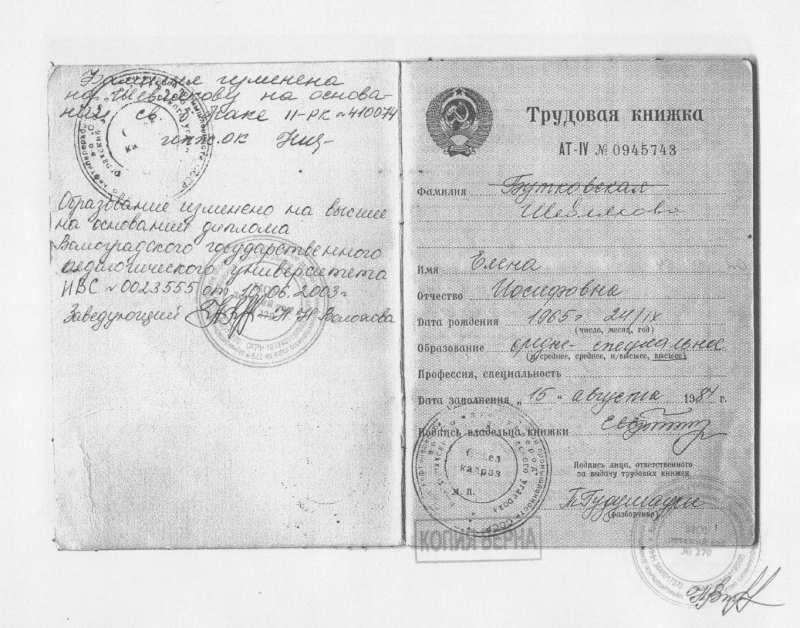 Фамилия изменена
на Шевлякову на основа-
нии св. о браке II-РК №410074
инсп. ОК
Образование изменено на высшее
на основании диплома
Волгоградского государственного
педагогического университета
ИВС №0023555 от 10.06.2003г
Заведующий Л Н Волохова
Трудовая книжка
АТ-IV № 0945743
Фамилия Бутковская
Имя Елена
Отчество Иосифовна
Дата рождения 1965г 24/IX
(число, месяц, год)
Образование средне-специальное
(н/среднее, среднее, н/высшее, высшее)
Профессия, специальность
Дата заполнения „15" августа 1984 г.
Подпись владельца книжки
отдел
кадров
М. П.
Подпись лица, ответственного
за выдачу трудовых книжек
(разборчиво)
КОПИЯ ВЕРНА
МОУ
детский сад
№ 279